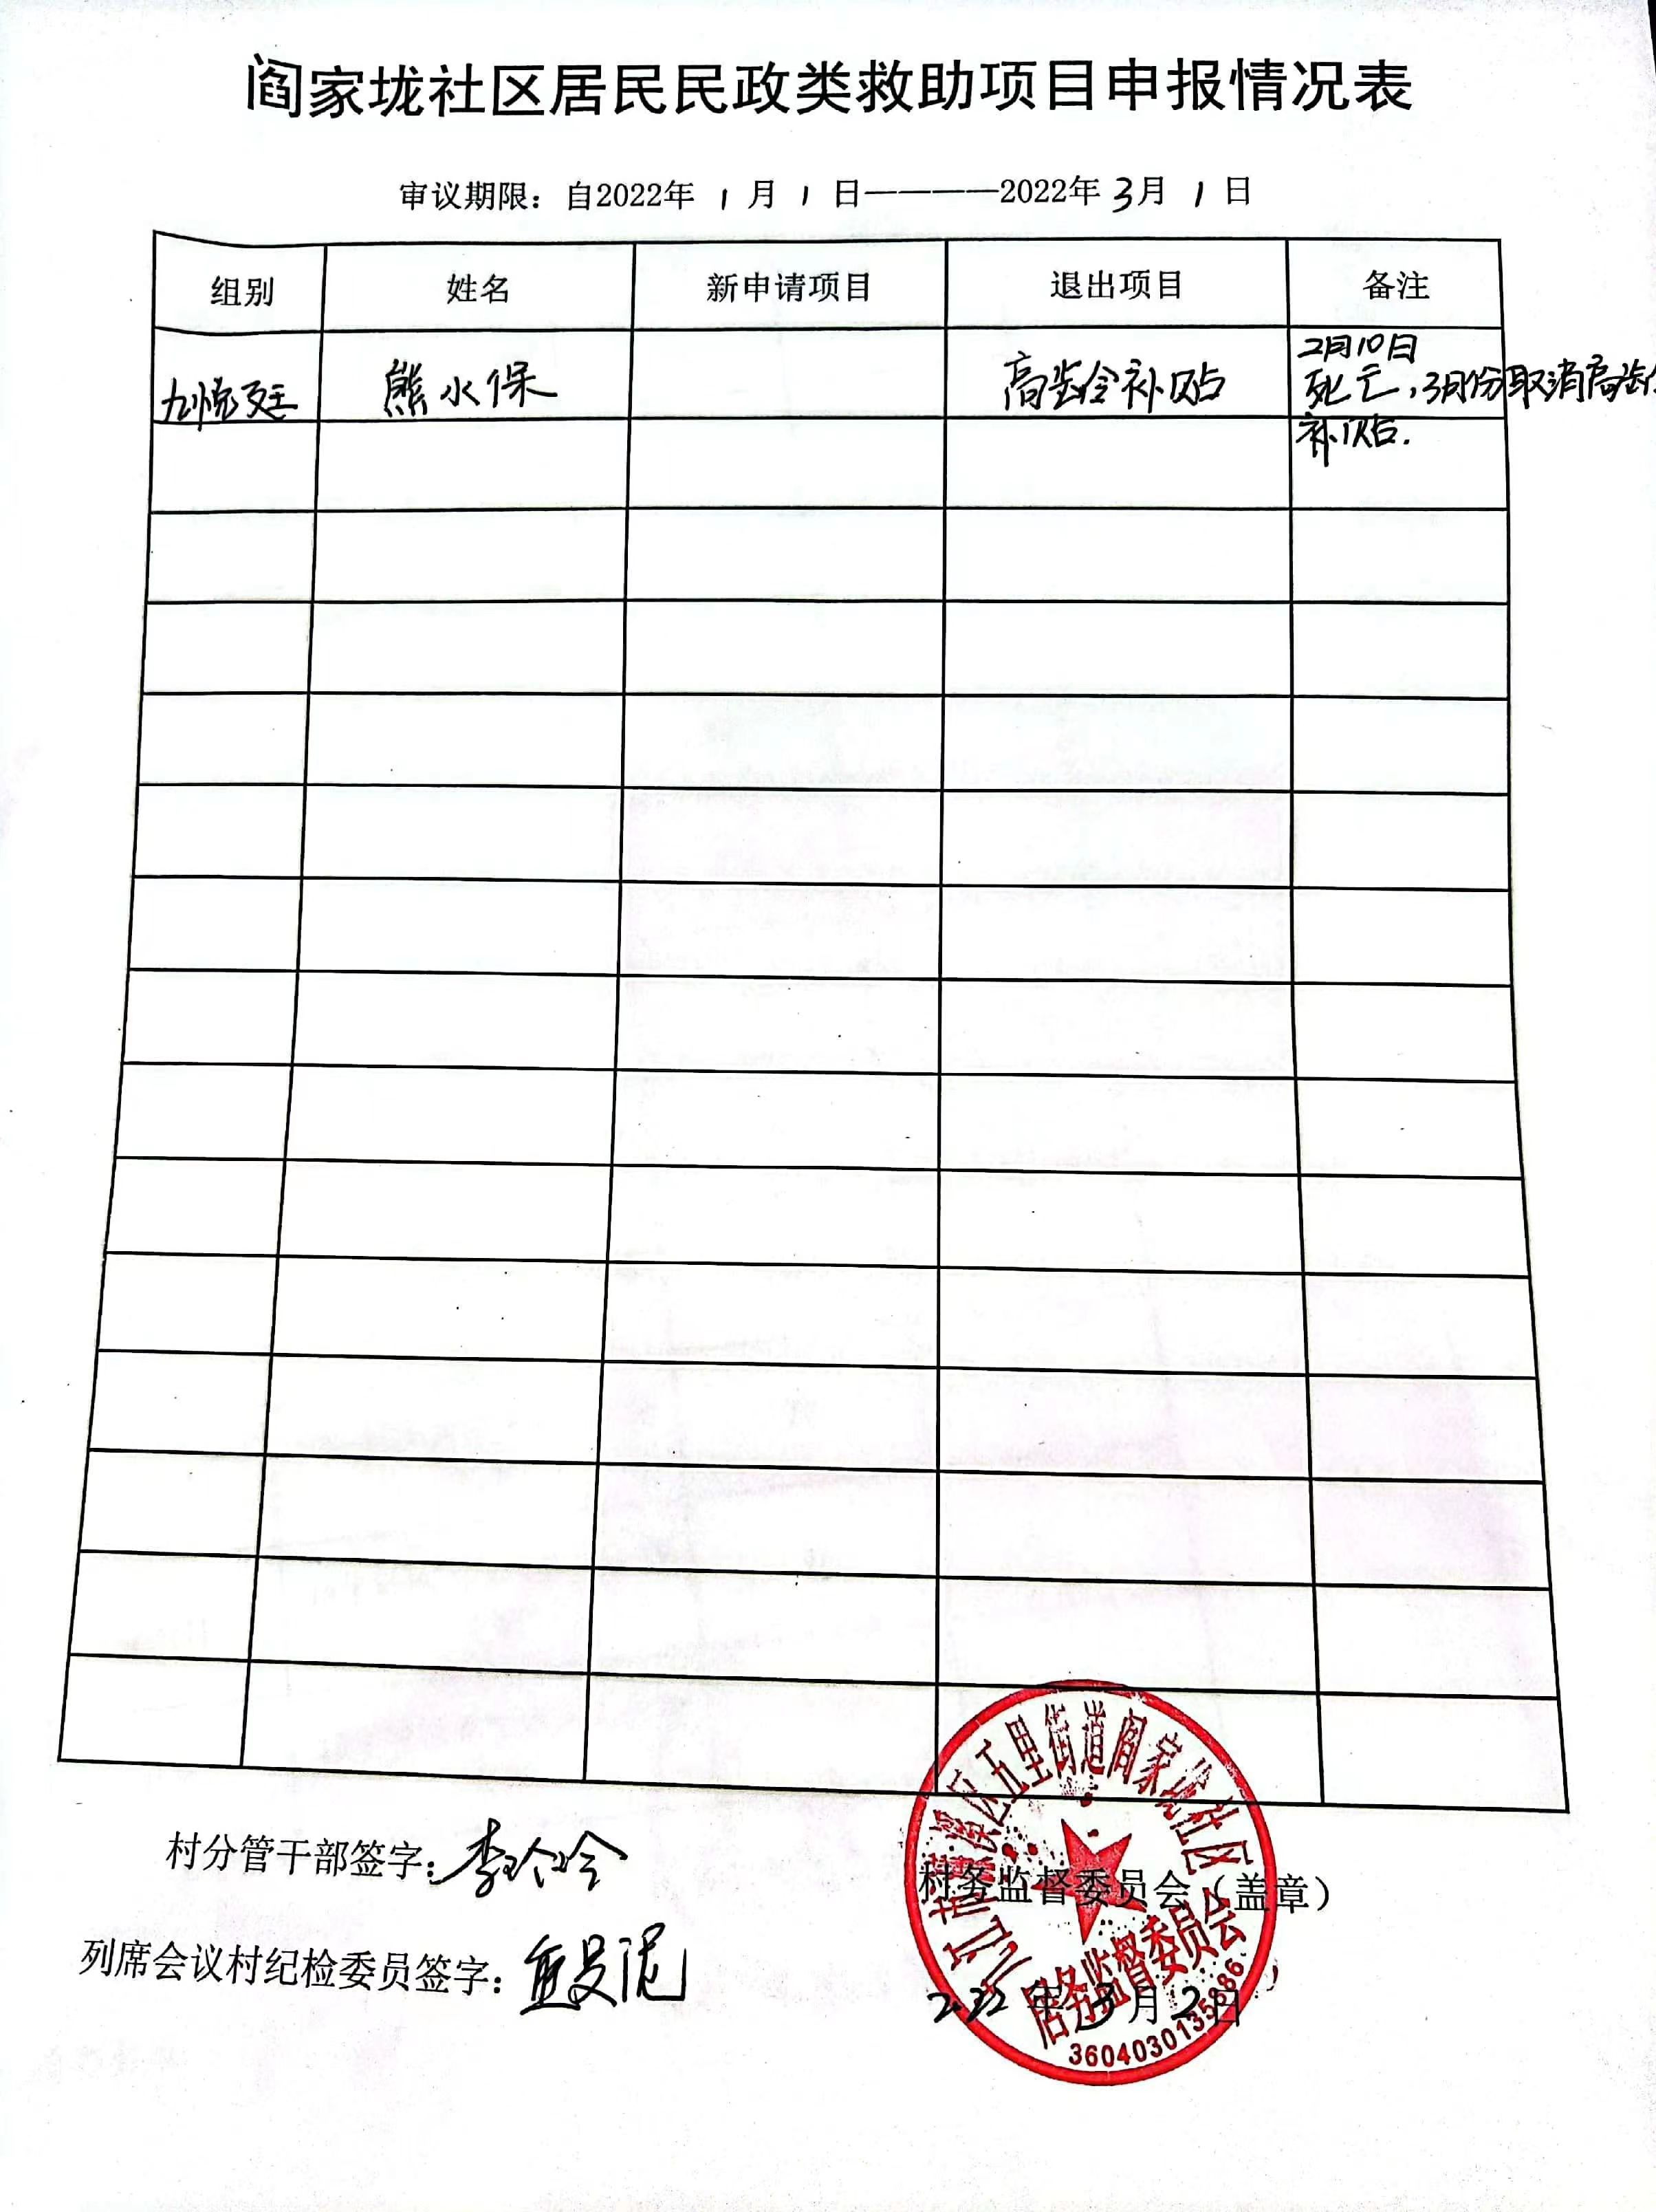 阎家垅社区居民民政类救助项目申报情况表
审议期限：自2022年 1 月 1 日————2022年 3月 1 日
组别 姓名 新申请项目 退出项目 备注
九悦廷 熊水保 高龄补贴 2月10日
死亡，3月份取消高龄
补贴.
村分管干部签字：李玲玲
村务监督委员会（盖章）
列席会议村纪检委员签字：
2022年3月2日
九江市濂溪区五里街道阎家垅社区
居务监督委员会
3604030135886